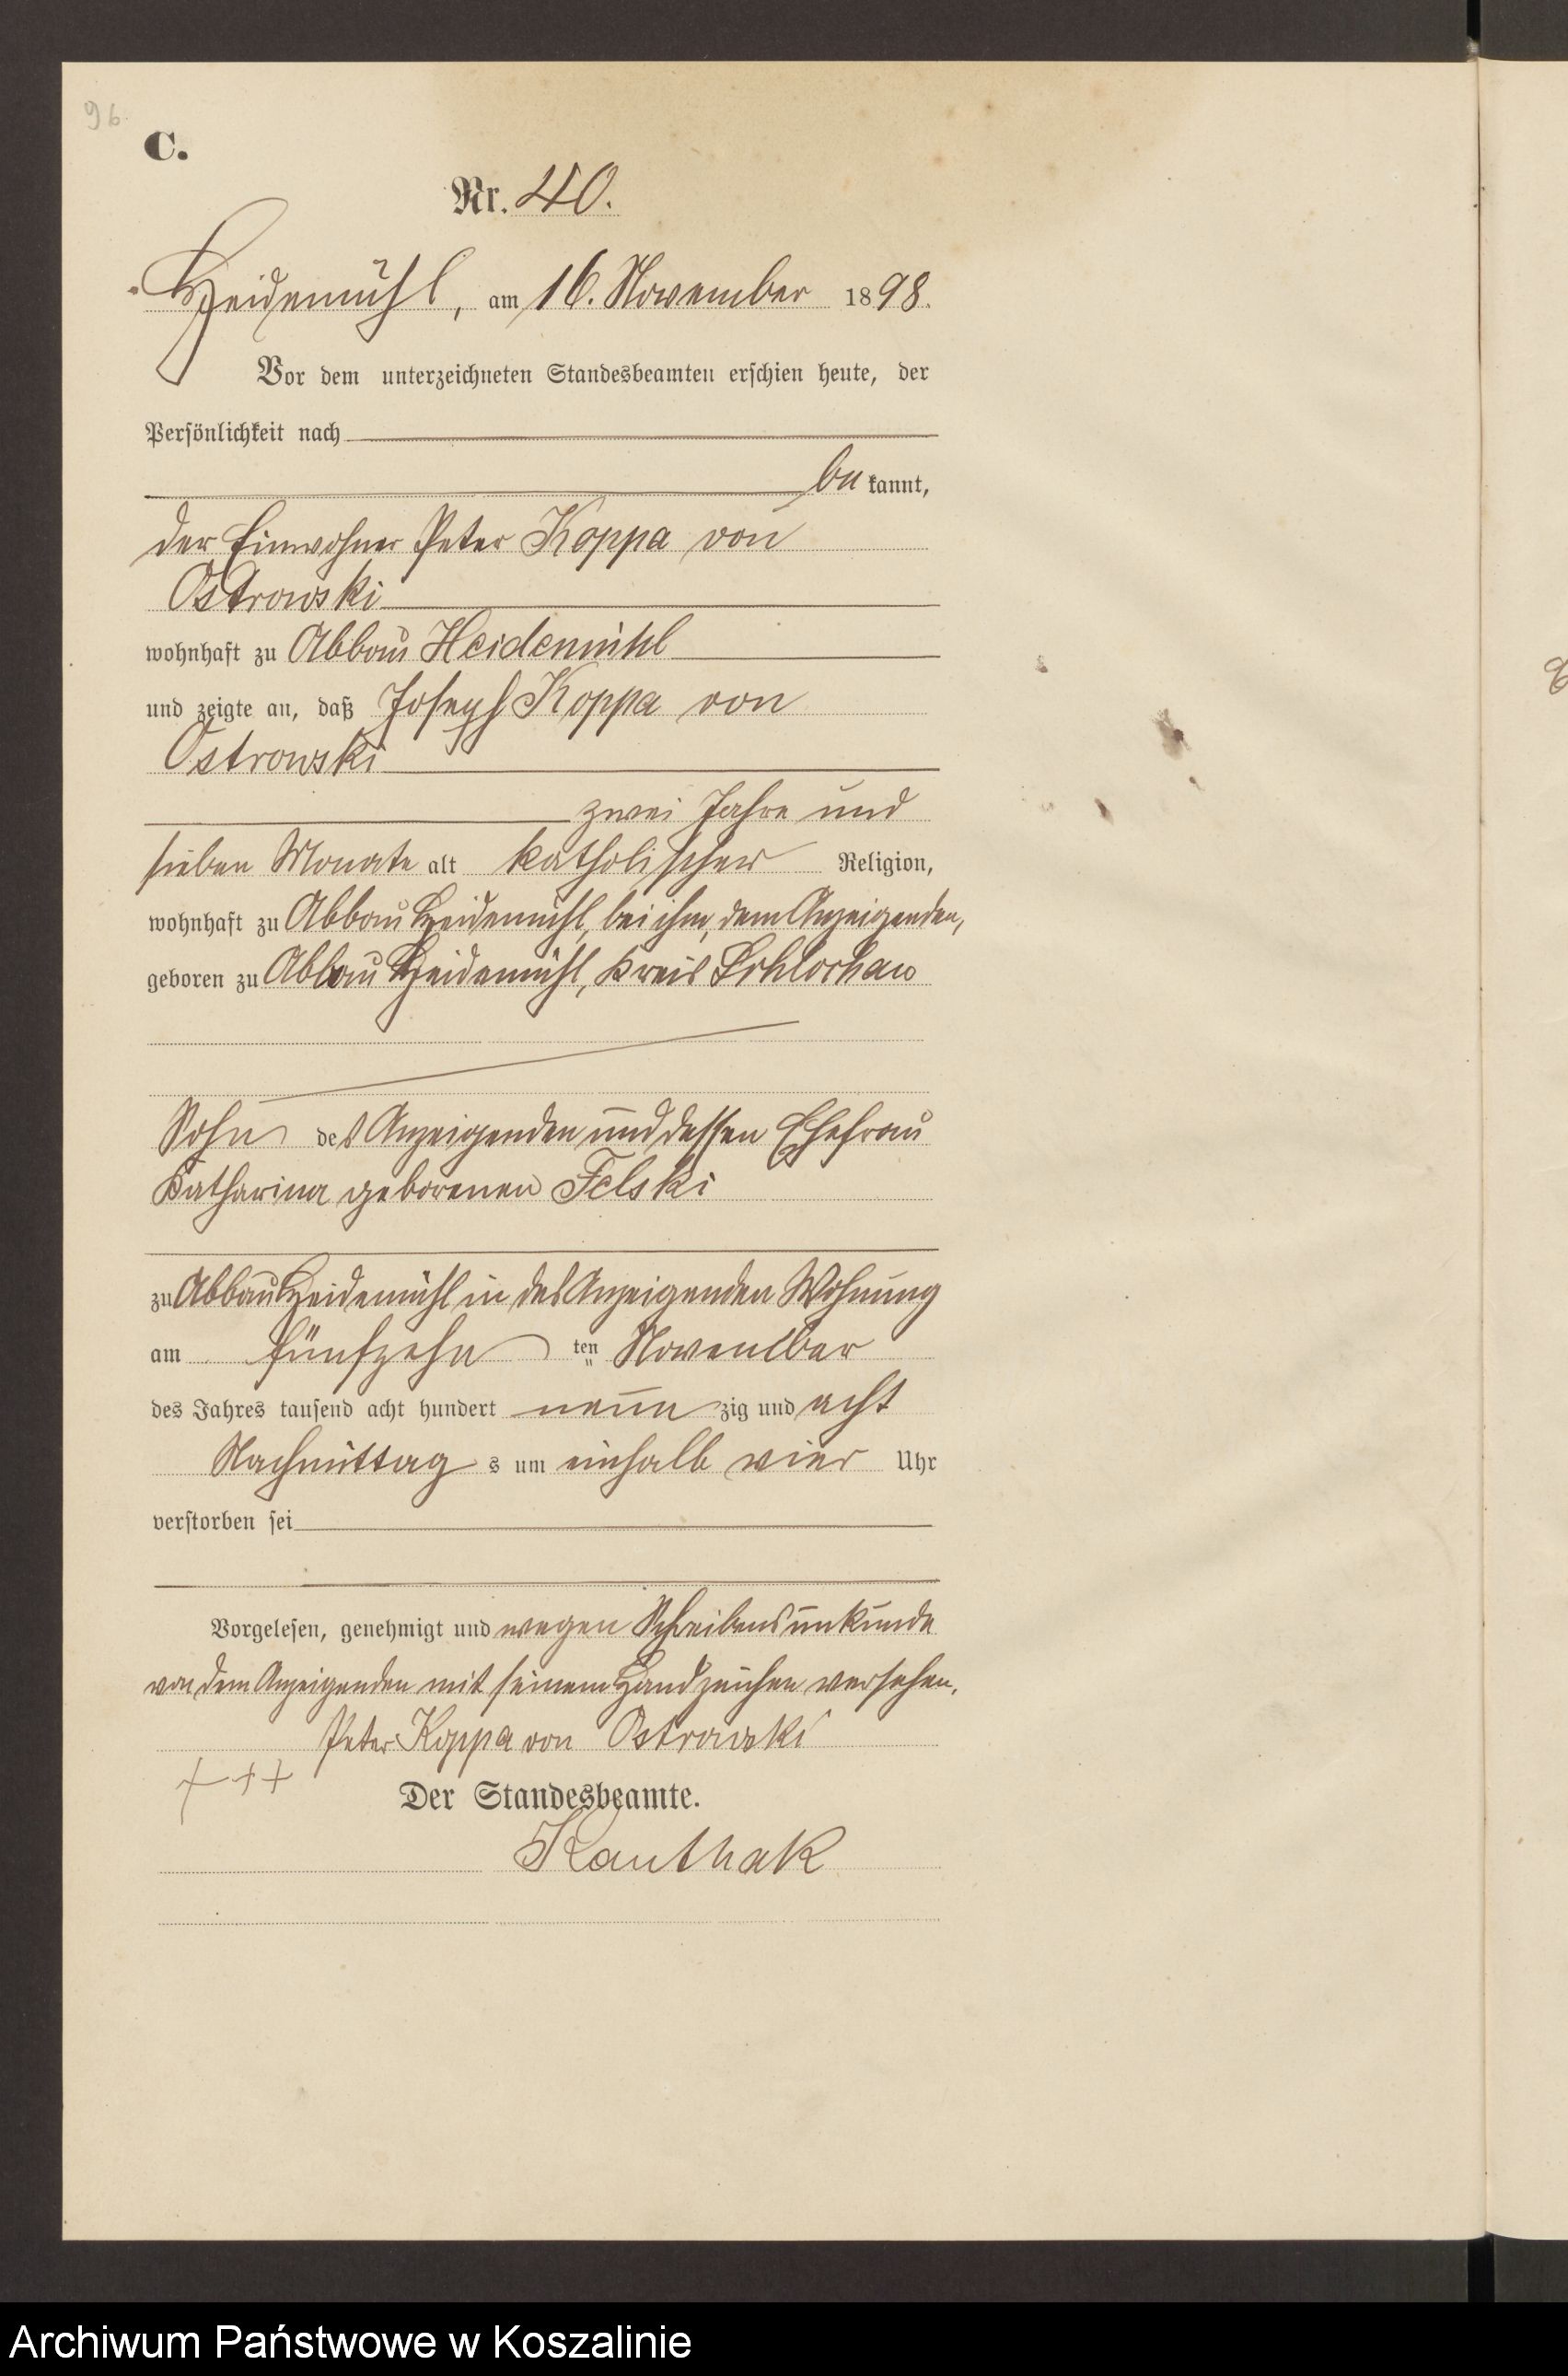 96.
C.
Nr. 40.
Heidemühl, am 16. November 1898.
Vor dem unterzeichneten Standesbeamten erschien heute, der
Persönlichkeit nach
be kannt,
der Einwohner Peter Koppa von
Ostrowski
wohnhaft zu Abbau Heidemühl
und zeigte an, daß Joseph Koppa von
Ostrowski
zwei Jahre und
sieben Monate alt katholischer Religion,
wohnhaft zu Abbau Heidemühl, bei ihm, dem Anzeigenden,
geboren zu Abbau Heidemühl, Kreis Schlochau
Sohn des Anzeigenden und dessen Ehefrau
Katharina geborenen Felski
zu Abbau Heidemühl in des Anzeigenden Wohnung
am fünfzehn ten November
des Jahres tausend acht hundert neun zig und acht
Nachmittag s um einhalb vier Uhr
verstorben sei
Vorgelesen, genehmigt und wegen Schreibensunkunde
von dem Anzeigenden mit seinem Handzeichen versehen.
Peter Koppa von Ostrowski
+++
Der Standesbeamte.
Kauthak
Archiwum Państwowe w Koszalinie